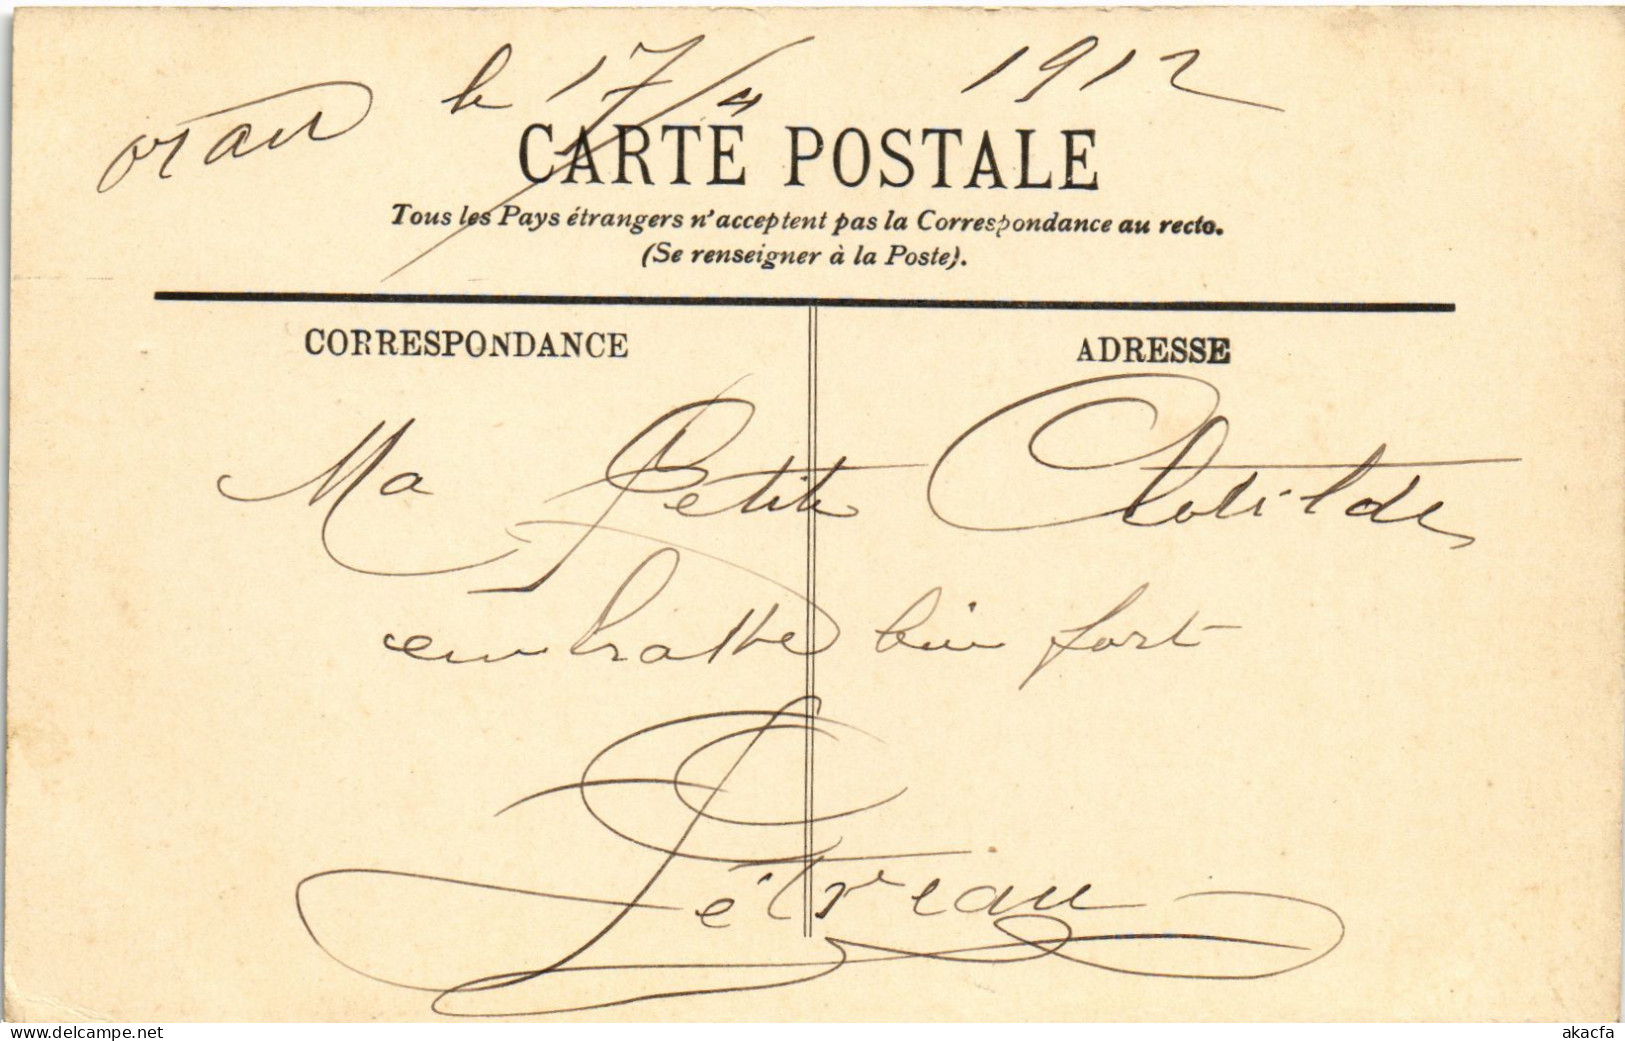 oran le 17/4 1912
CARTE POSTALE
Tous les Pays étrangers n'acceptent pas la Correspondance au recto.
(Se renseigner à la Poste).
CORRESPONDANCE
ADRESSE
Ma Petite Clotilde
embrasse bien fort
delcampe.net
akacfa